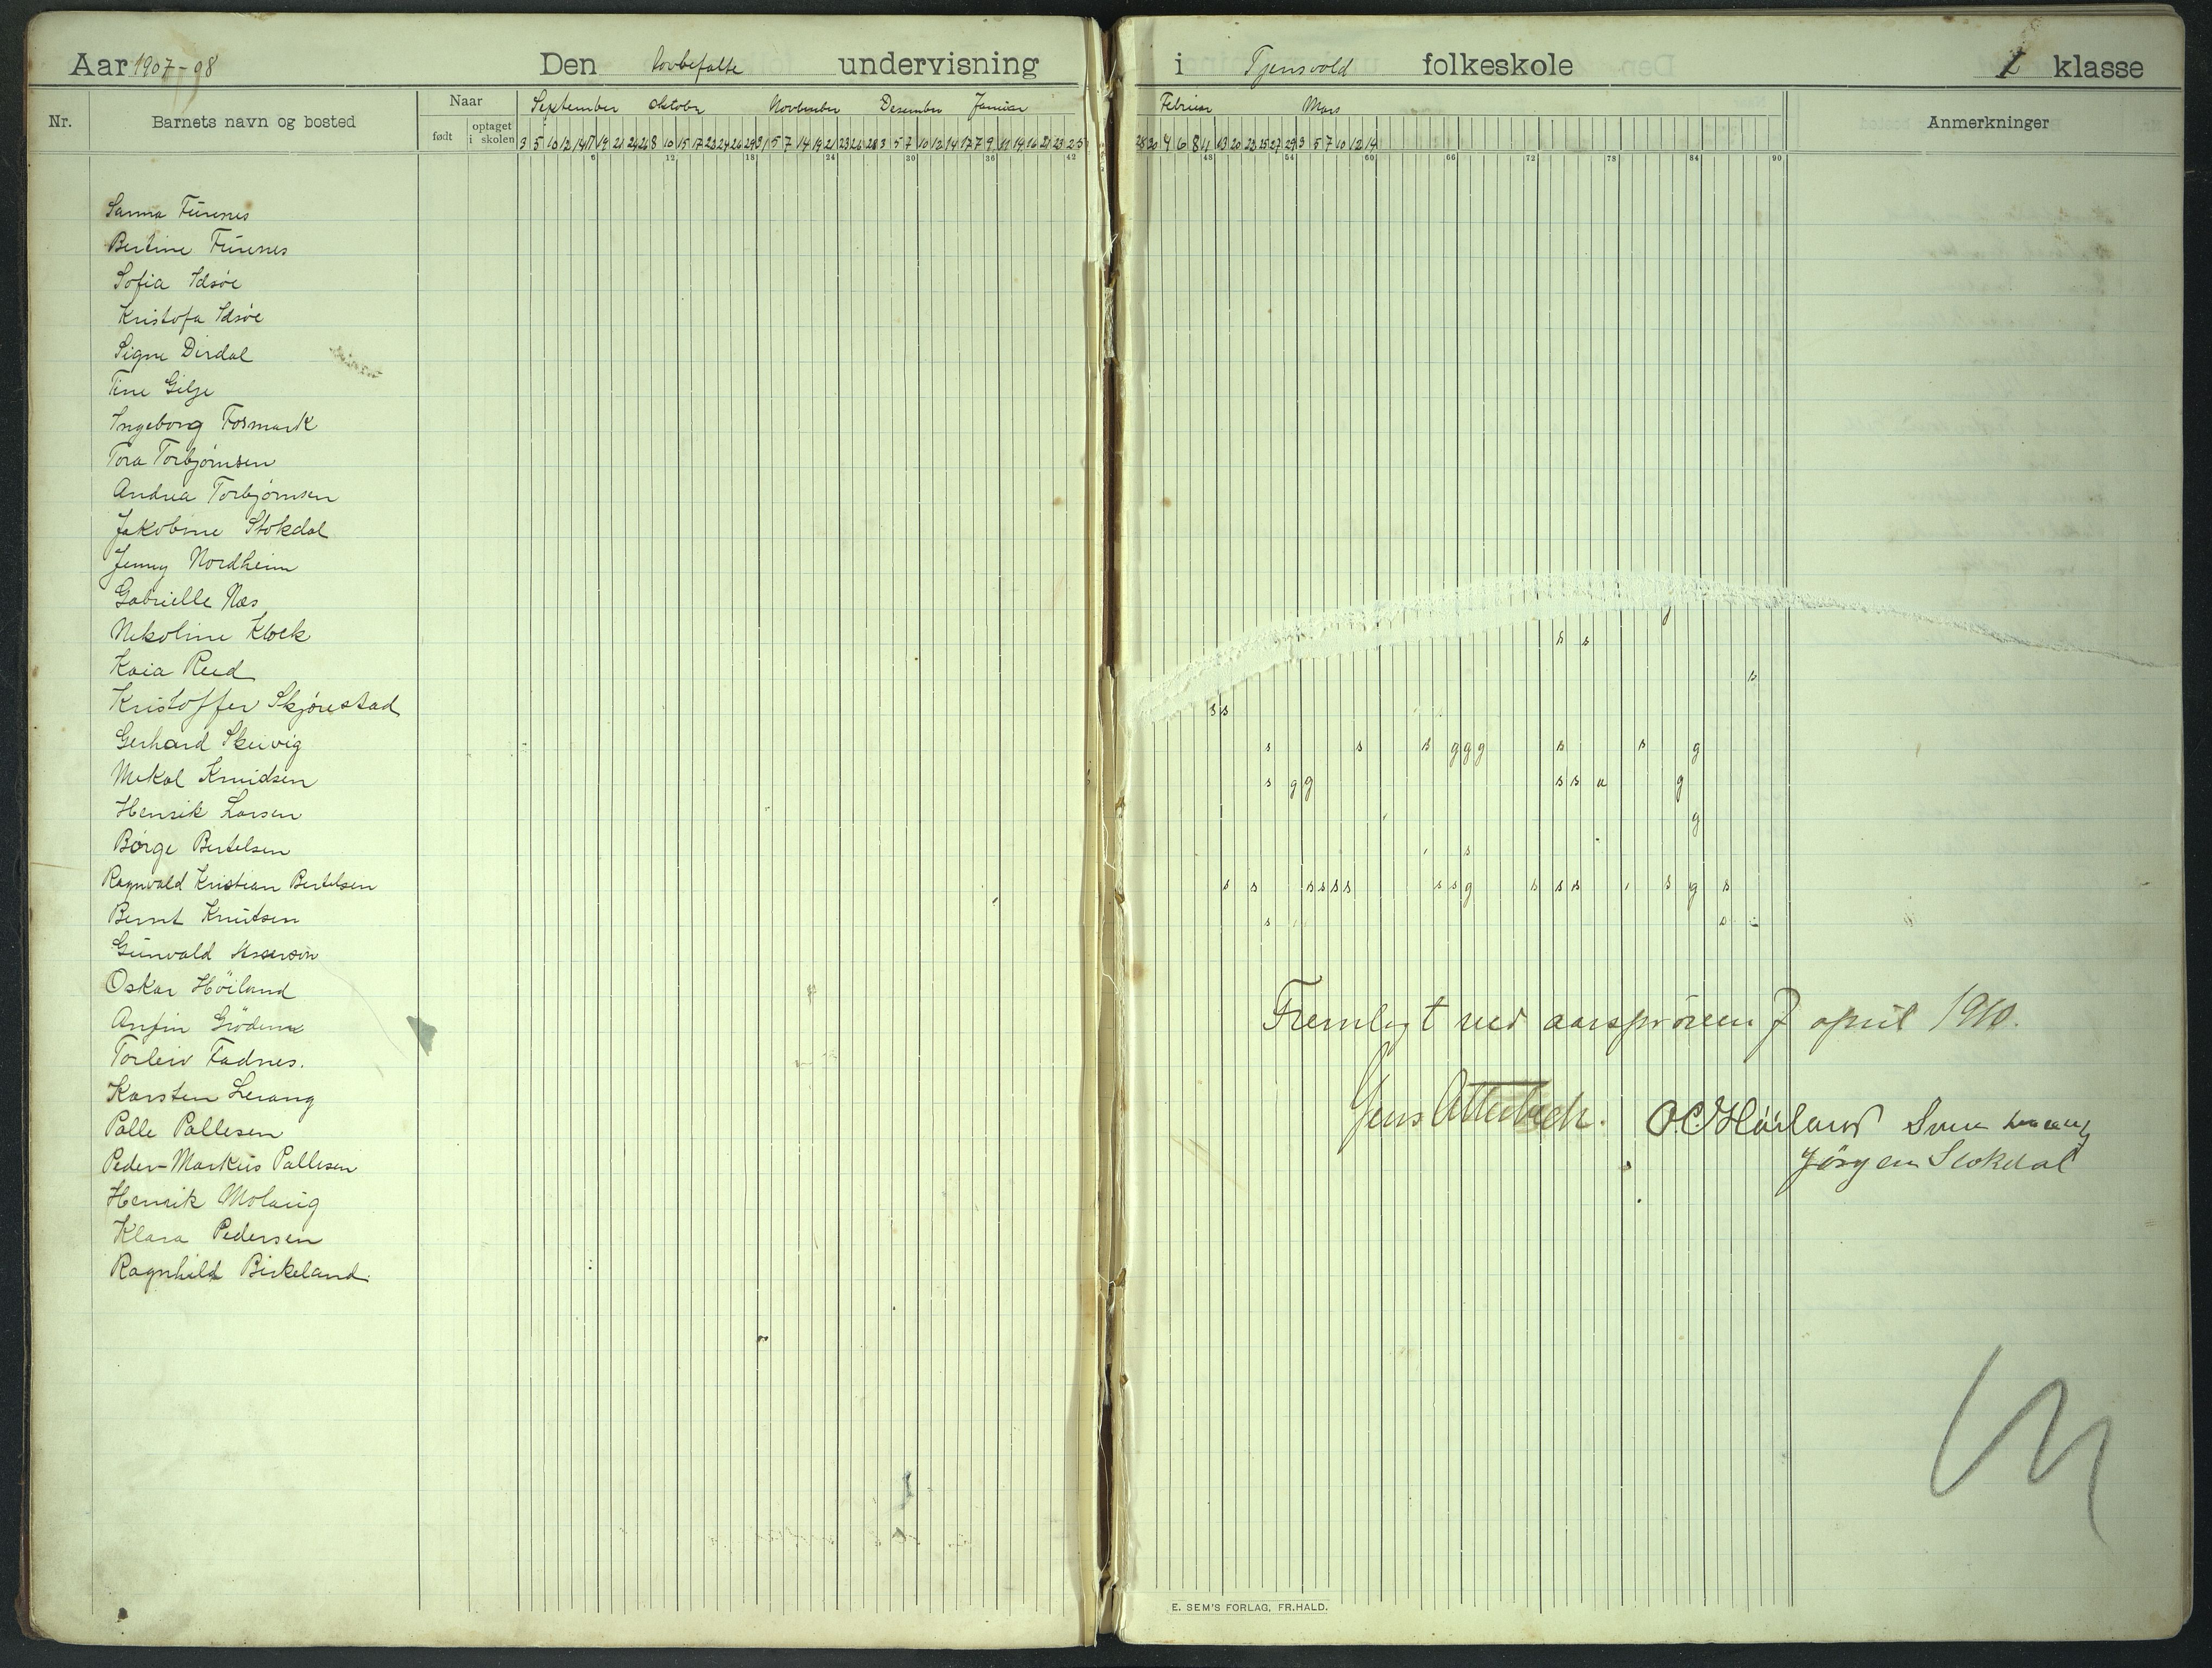 Aar 1907-08 Den lovbefalte undervisning i Tjensvold folkeskole 1 klasse
Nr. Barnets navn og bosted Naar født optaget i skolen September Oktober November Desember Januar Februar Mars Anmerkninger
3 5 10 12 14 17 19 21 24 26 8 10 15 17 22 24 26 29 31 5 7 14 19 21 23 26 28 3 5 7 10 12 14 17 7 9 11 14 16 21 23 25 28 30 4 6 8 11 13 20 22 25 27 29 3 5 7 10 12 14
6 12 18 24 30 36 42 48 54 60 66 72 78 84 90
Sanna Furenes
Bertine Furenes
Sofia Idsøe
Kristofa Idsøe
Signe Dirdal
Tine Gilje
Ingeborg Fosmark
Tora Torbjørnsen
Andrea Torbjørnsen
Jakobine Stokdal
Jenny Nordheim
Gabrielle Næs g
Nekoline Klock s s
Kaia Reed s
Kristoffer Skjørestad s s
Gerhard Skeivig s s s g g g s s g
Mekal Knudsen s g g s s a g
Henrik Larsen g
Børge Bertelsen s
Ragnvald Kristian Bertelsen s s s s s s s s g s s s s g s
Bernt Knutsen s s
Gunvald Asserson
Oskar Höiland
Anfin Grödem
Torleiv Fadnes.
Karsten Lerang
Palle Pallesen
Peder-Markus Pallesen
Henrik Molaug
Klara Pedersen
Ragnhild Birkeland.
Fremlagt ved aarsprøven 7 april 1910.
Jens Atterbech. O.C. Høiland Sven
Jörgen Stokdal
E. SEM'S FORLAG, FR.HALD.